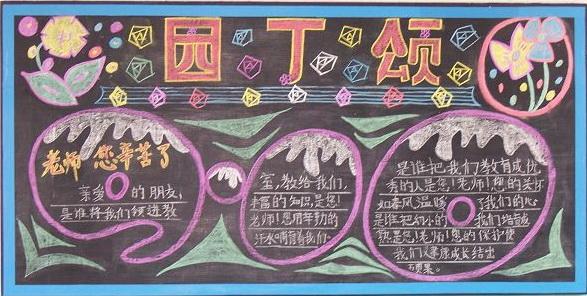 园丁颂
老师 您辛苦了
亲爱的朋友,
是谁将我们领进教
室,教给我们,
丰富的知识,是您!
老师!您用辛勤的
汗水哺育着我们。
是谁把我们教育成优
秀的人是您!老师!您的关怀
如春风温暖了我们的心
是谁把幼小的我们培育
是您!老师!您的保护使
我们健康成长结出
硕果。